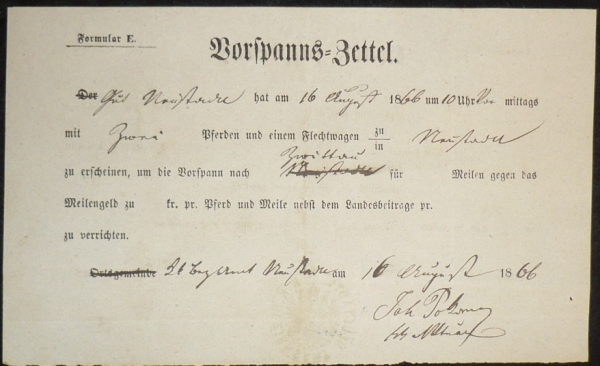 Formular E.
Vorspanns-Zettel.
Der Gut Neustadtl hat am 16 August 1866 um 10 Uhr Vor mittags
mit Zwei Pferden und einem Flechtwagen zu/in Neustadtl
Zwittau
zu erscheinen, um die Vorspann nach Neustadtl für Meilen gegen das
Meilengeld zu kr. pr. Pferd und Meile nebst dem Landesbeitrage pr.
zu verrichten.
Ortsgemeinde Bez Amt Neustadtl am 16 August 1866
Joh